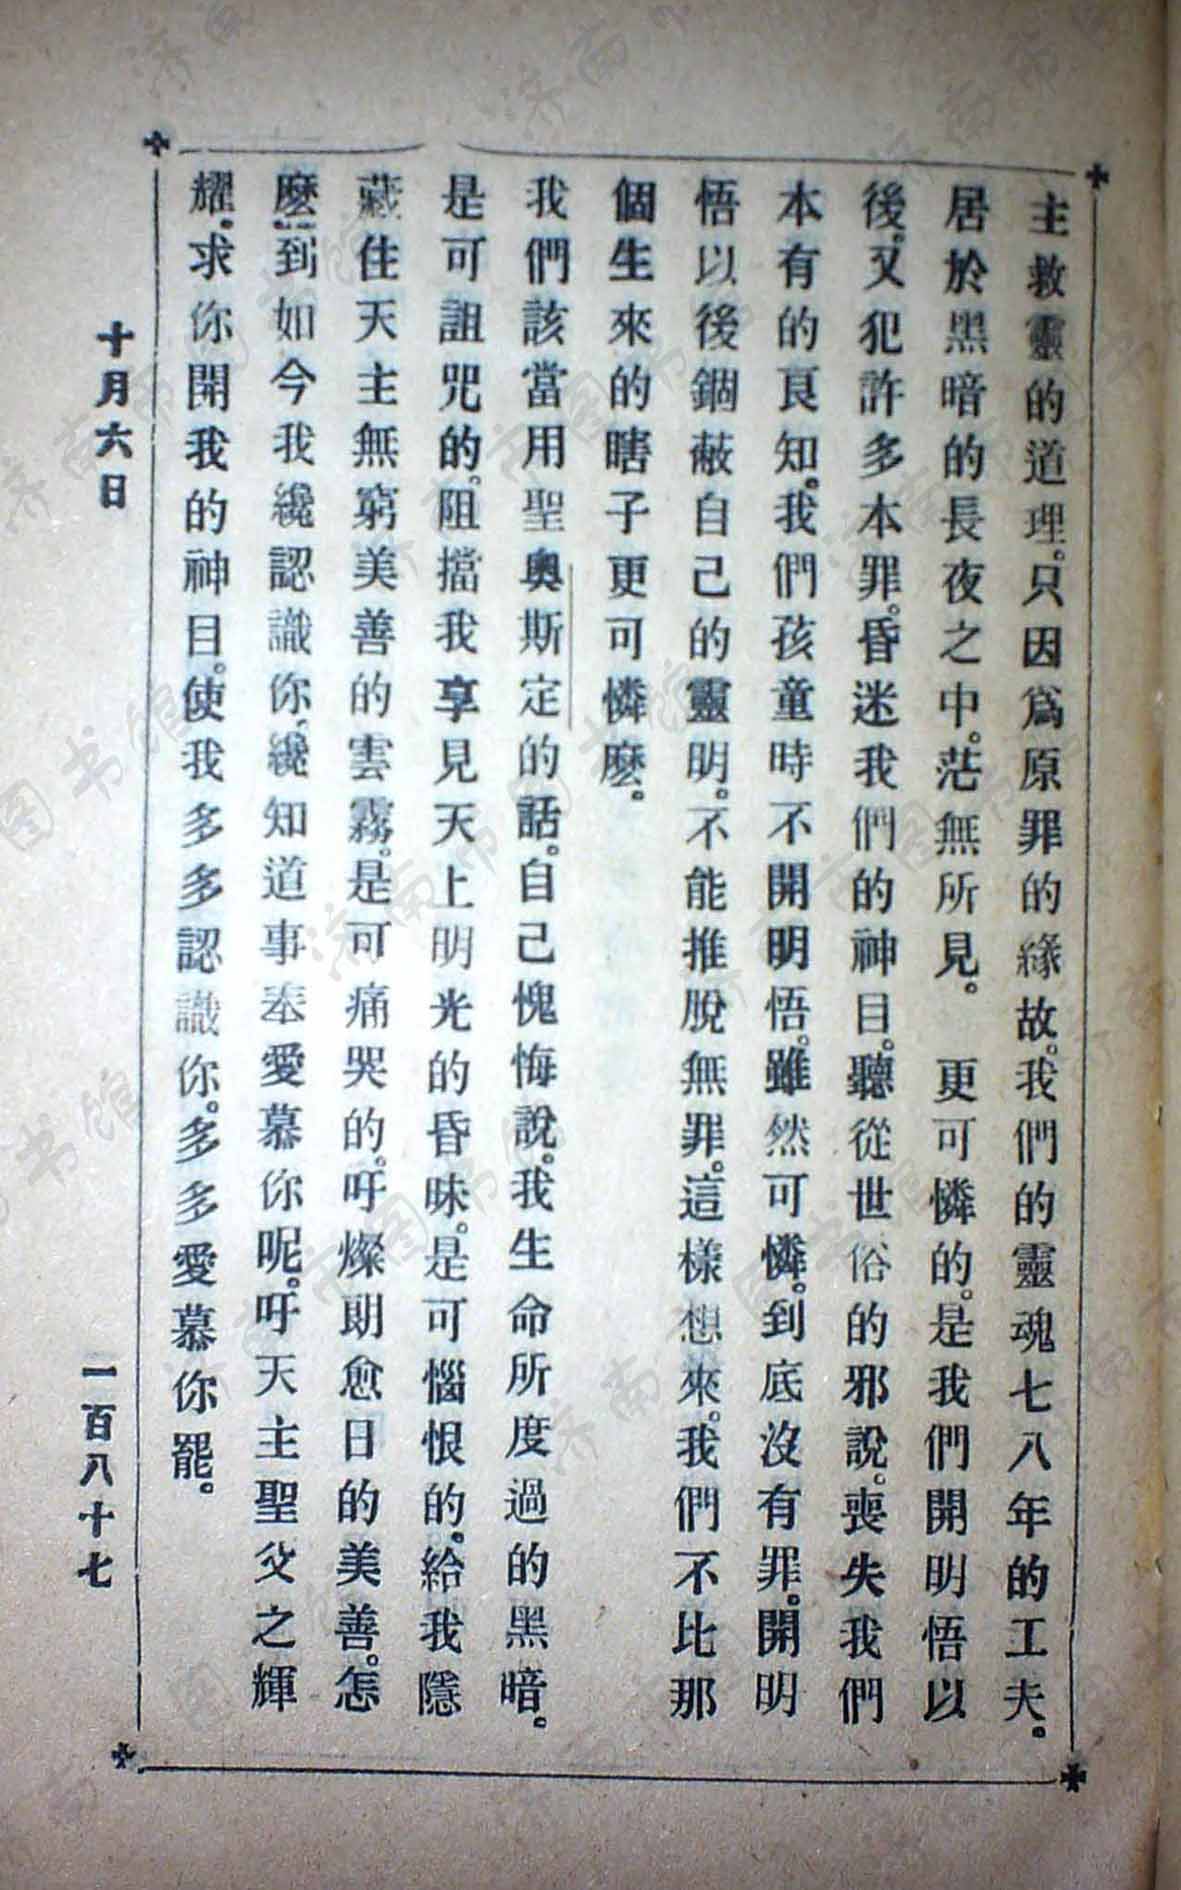 主救靈的道理。只因爲原罪的緣故。我們的靈魂七八年的工夫。
居於黑暗的長夜之中。茫無所見。　更可憐的。是我們開明悟以
後。又犯許多本罪。昏迷我們的神目。聽從世俗的邪說。喪失我們
本有的良知。我們孩童時不開明悟。雖然可憐。到底沒有罪。開明
悟以後錮蔽自己的靈明。不能推脫無罪。這樣想來。我們不比那
個生來的瞎子更可憐麽。
我們該當用聖奧斯定的話。自己愧悔說。我生命所度過的黑暗。
是可詛咒的。阻擋我享見天上明光的昏昧。是可惱恨的。給我隱
藏住天主無窮美善的雲霧。是可痛哭的。吁燦朗愈日的美善。怎
麽到如今我纔認識你。纔知道事奉愛慕你呢。吁天主聖父之輝
耀。求你開我的神目。使我多多認識你。多多愛慕你罷。
十月六日
一百八十七
济南市图书馆